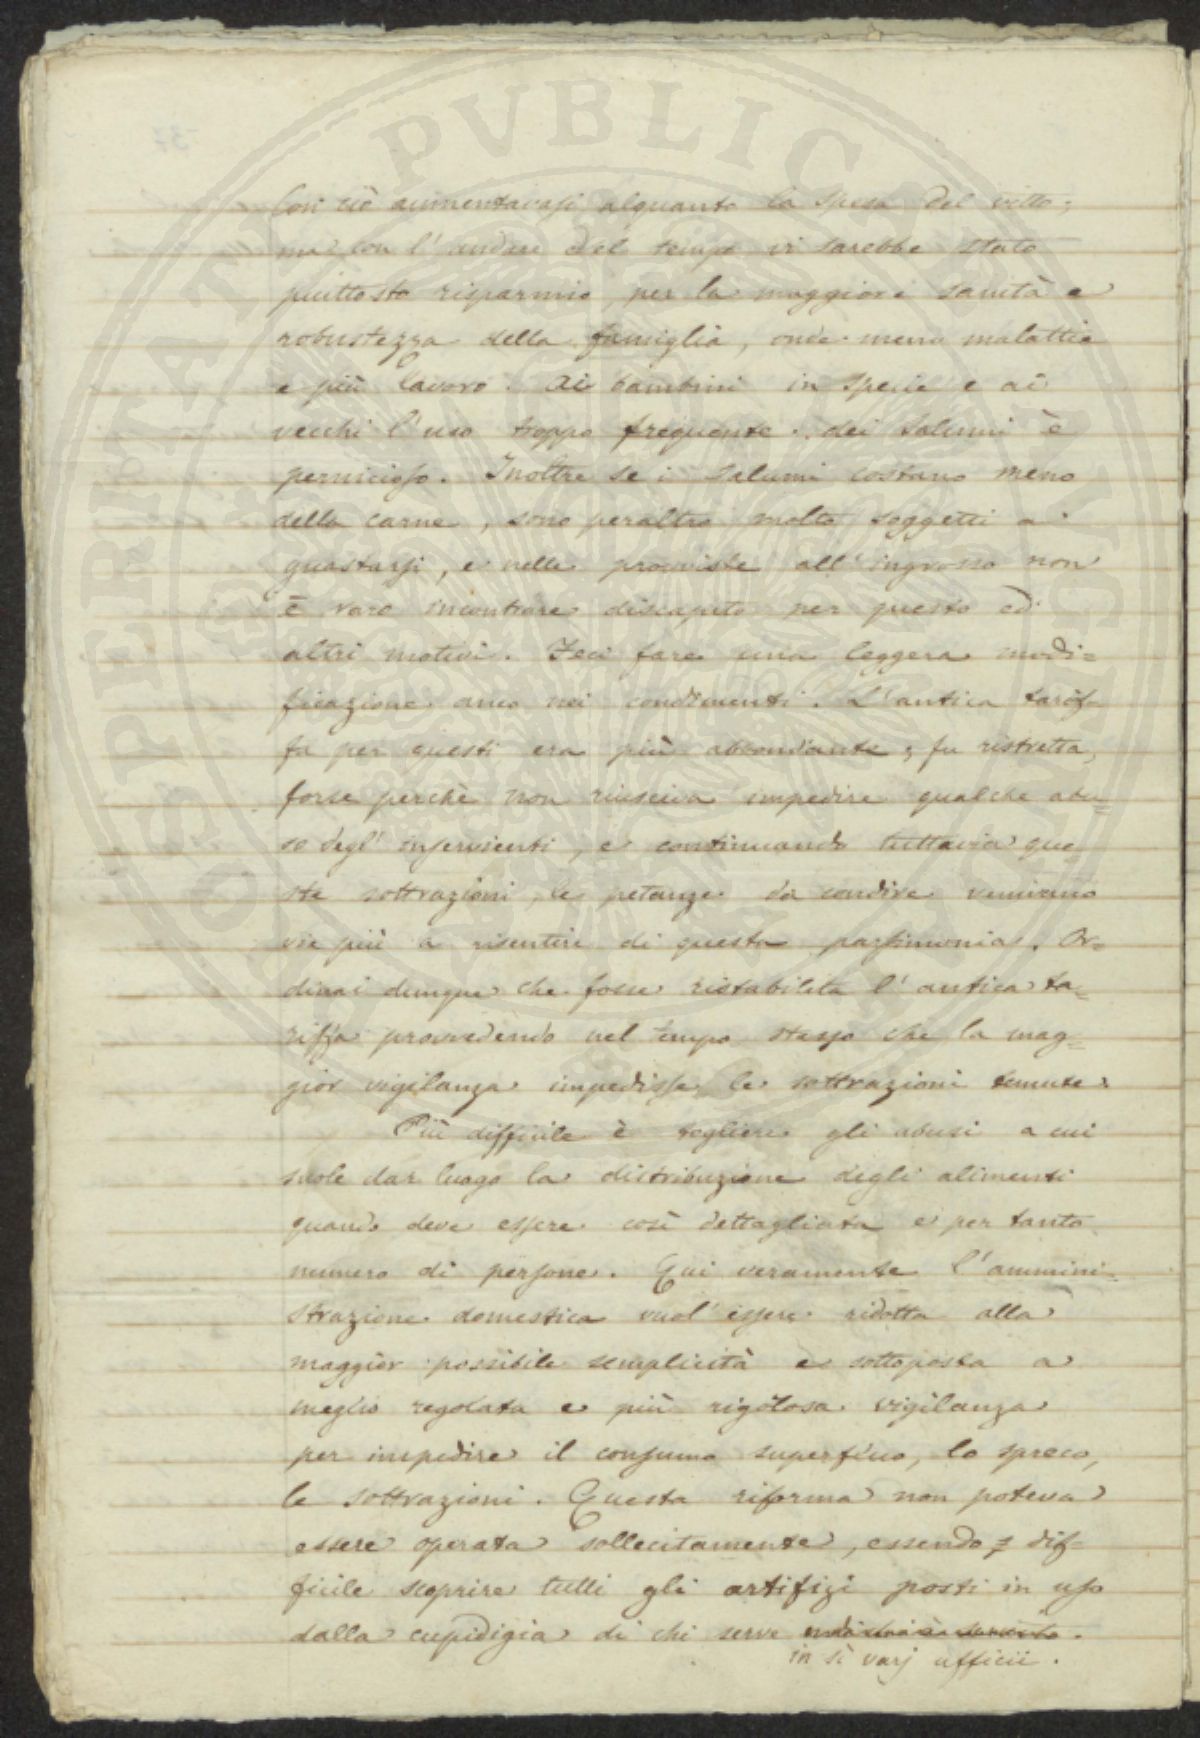 Con ciò aumentavasi alquanto la spesa del vitto;
ma con l'andare del tempo vi sarebbe stato
piuttosto risparmio, per la maggiore sanità e
robustezza della famiglia, onde meno malattie
e più lavoro. Ai bambini in specie e ai
vecchi l'uso troppo frequente dei salumi è
pernicioso. Inoltre se i salumi costano meno
della carne, sono peraltro molto soggetti a
guastarsi, e nelle provviste all'ingrosso non
è raro incontrare discapito per questo ed
altri motivi. Feci fare una leggera modi=
ficazione anco nei condimenti. L'antica tarif=
fa per questi era più abbondante; fu ristretta,
forse perchè non riusciva impedire qualche abu=
so degl'inservienti, e continuando tuttavia que
ste sottrazioni, le petanze da condire venivano
vie più a risentire di questa parsimonia. Or=
dinai dunque che fosse ristabilita l'antica ta=
riffa provvedendo nel tempo stesso che la mag=
gior vigilanza impedisse le sottrazioni temute.
Più difficile è togliere gli abusi a cui
suole dar luogo la distribuzione degli alimenti
quando deve essere così dettagliata e per tanto
numero di persone. Qui veramente l'ammini=
strazione domestica vuol'essere ridotta alla
maggior possibile semplicità e sottoposta a
meglio regolata e più rigorosa vigilanza
per impedire il consumo superfluo, lo spreco,
le sottrazioni. Questa riforma non poteva
essere operata sollecitamente, essendo dif=
ficile scoprire tutti gli artifizi posti in uso
dalla cupidigia di chi serve
in sì varj ufficii.
PROSPERITATI PVBLICAE AVGENDAE